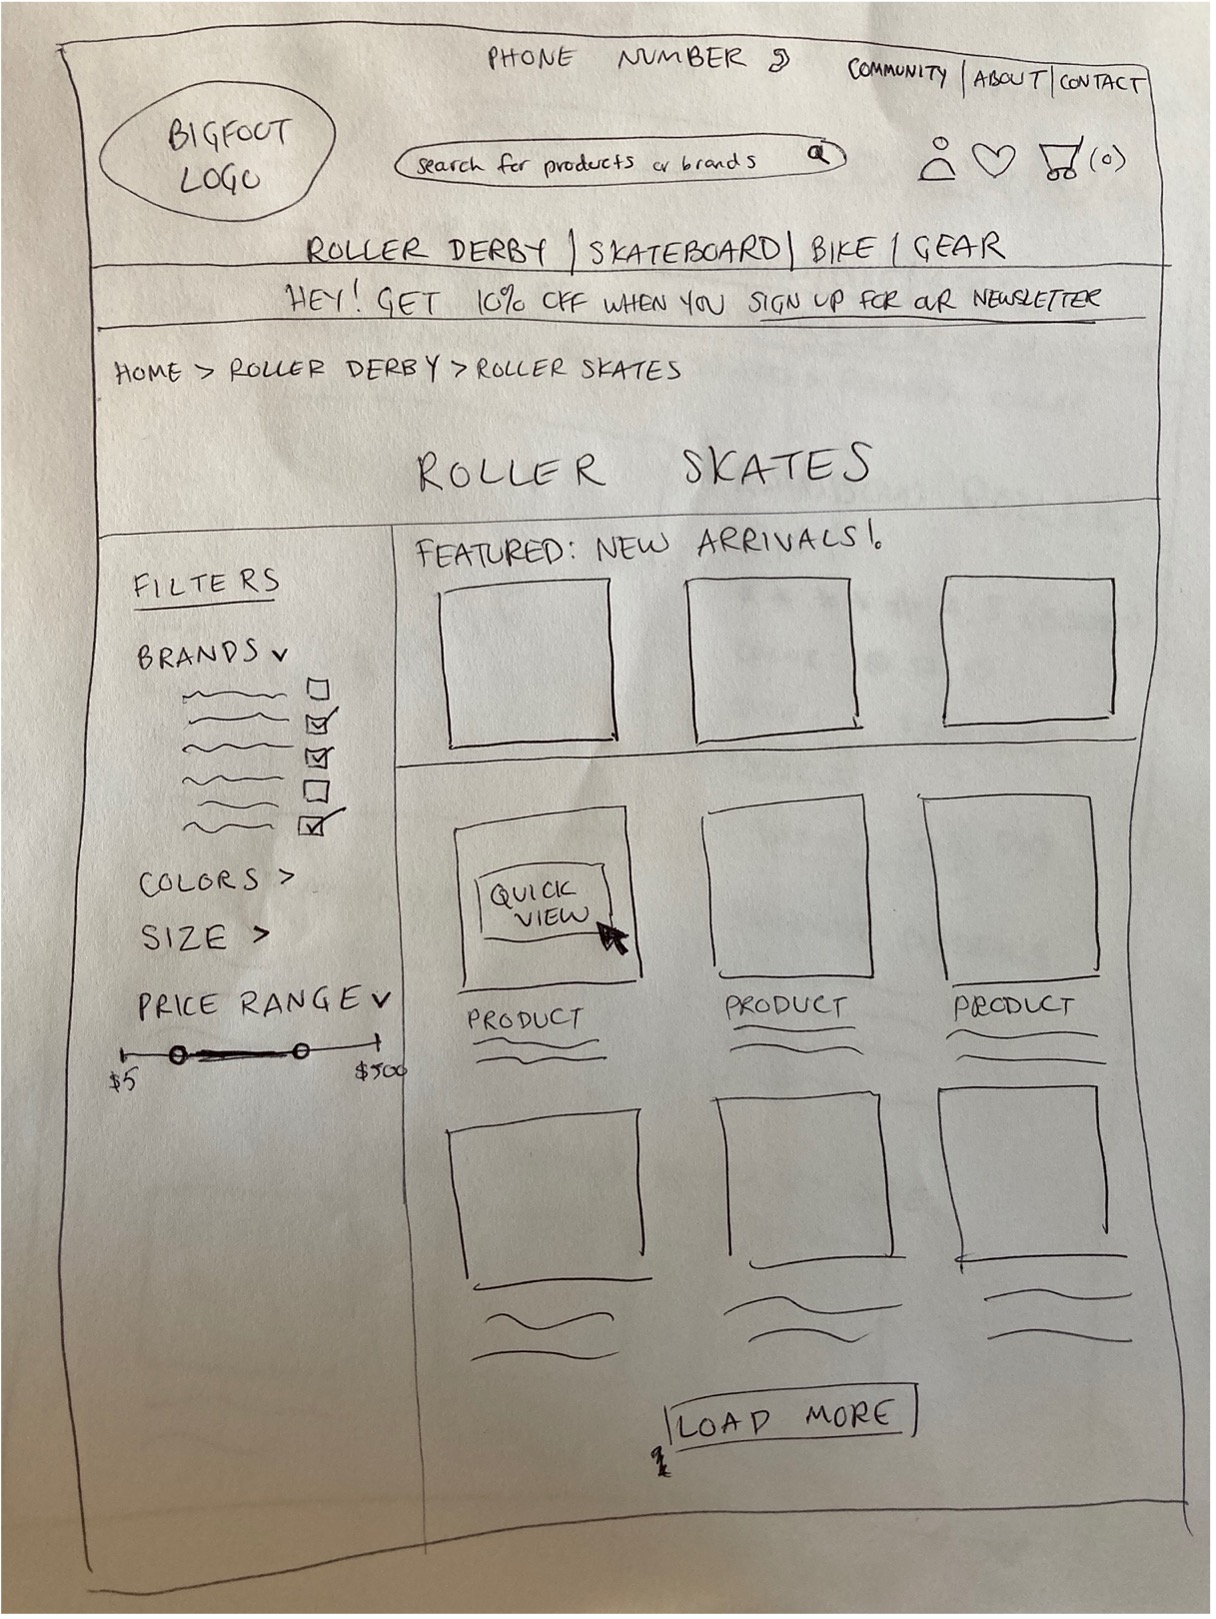 PHONE NUMBER
COMMUNITY | ABOUT | CONTACT
BIGFOOT
LOGO
search for products or brands
(0)
ROLLER DERBY | SKATEBOARD | BIKE | GEAR
HEY! GET 10% OFF WHEN YOU SIGN UP FOR OUR NEWSLETTER
HOME > ROLLER DERBY > ROLLER SKATES
ROLLER SKATES
FILTERS
BRANDS
COLORS >
SIZE >
PRICE RANGE
$5
$500
FEATURED: NEW ARRIVALS!
QUICK
VIEW
PRODUCT
PRODUCT
PRODUCT
LOAD MORE